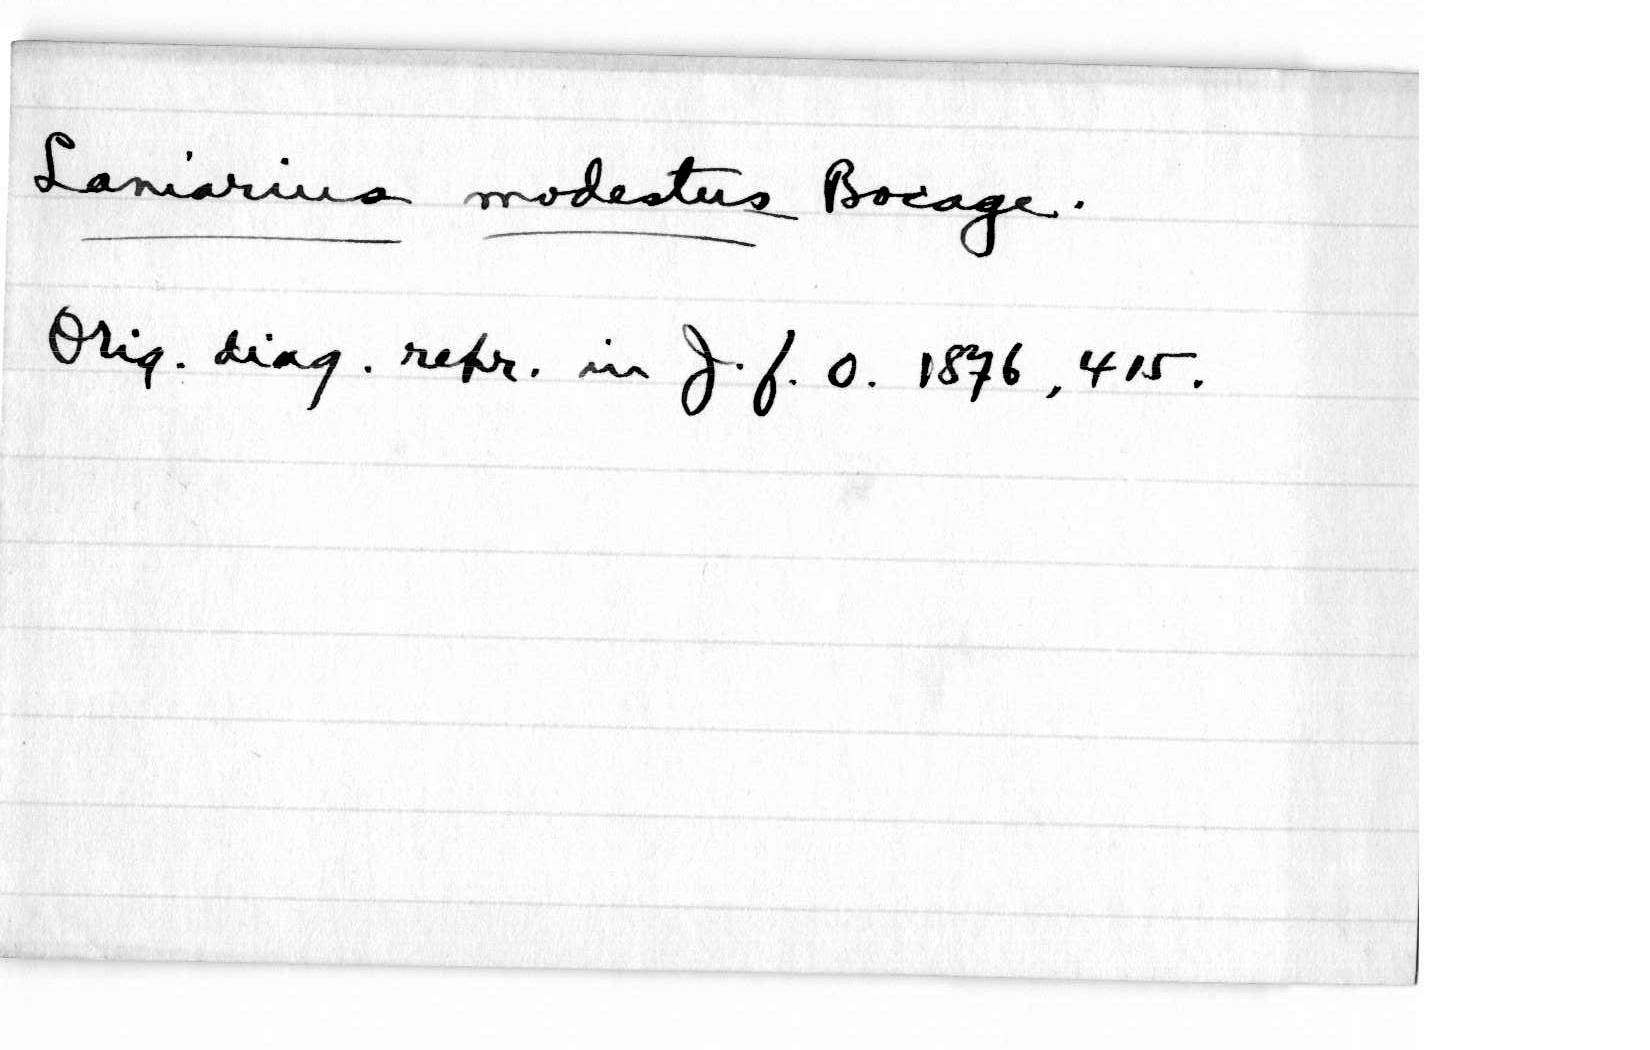 Laniarius modestus Bocage.
Orig. diag. repr. in J. f. O. 1876, 415.